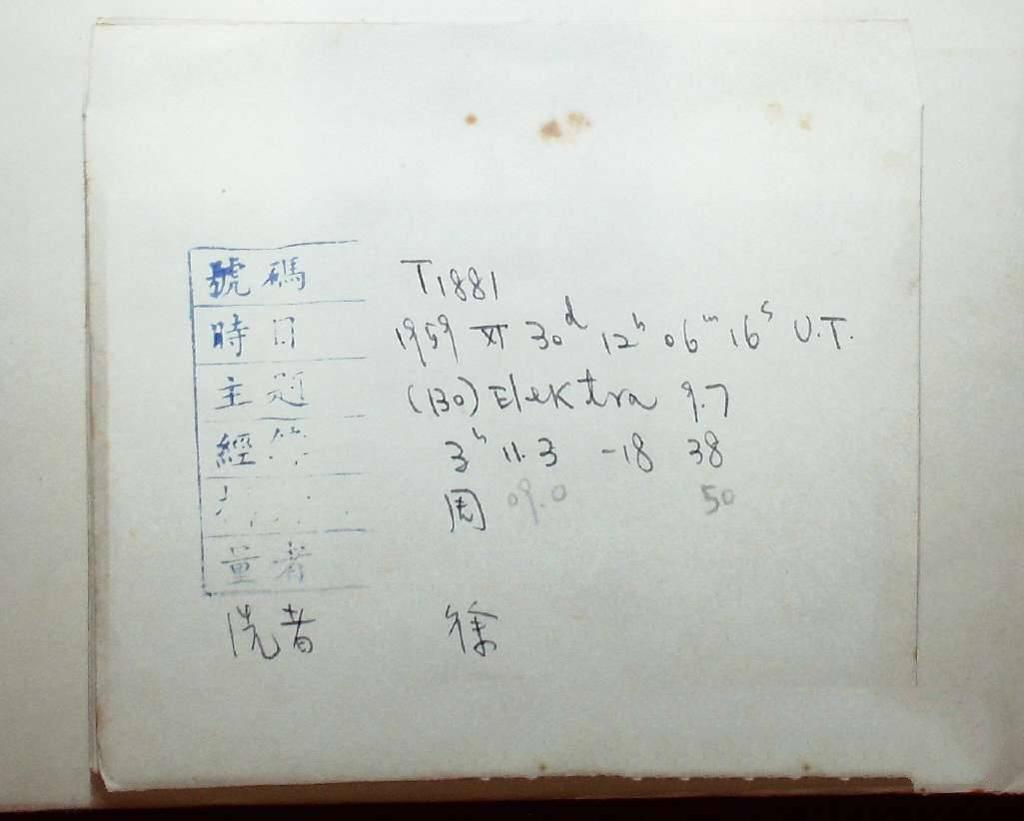 號碼 T1881
時日 1959 XI 30d 12h 06m 16s U.T.
主題 (130) Elektra 9.7
經 3h 11.3 -18 38
周 09.0 50
量者
洗者 徐